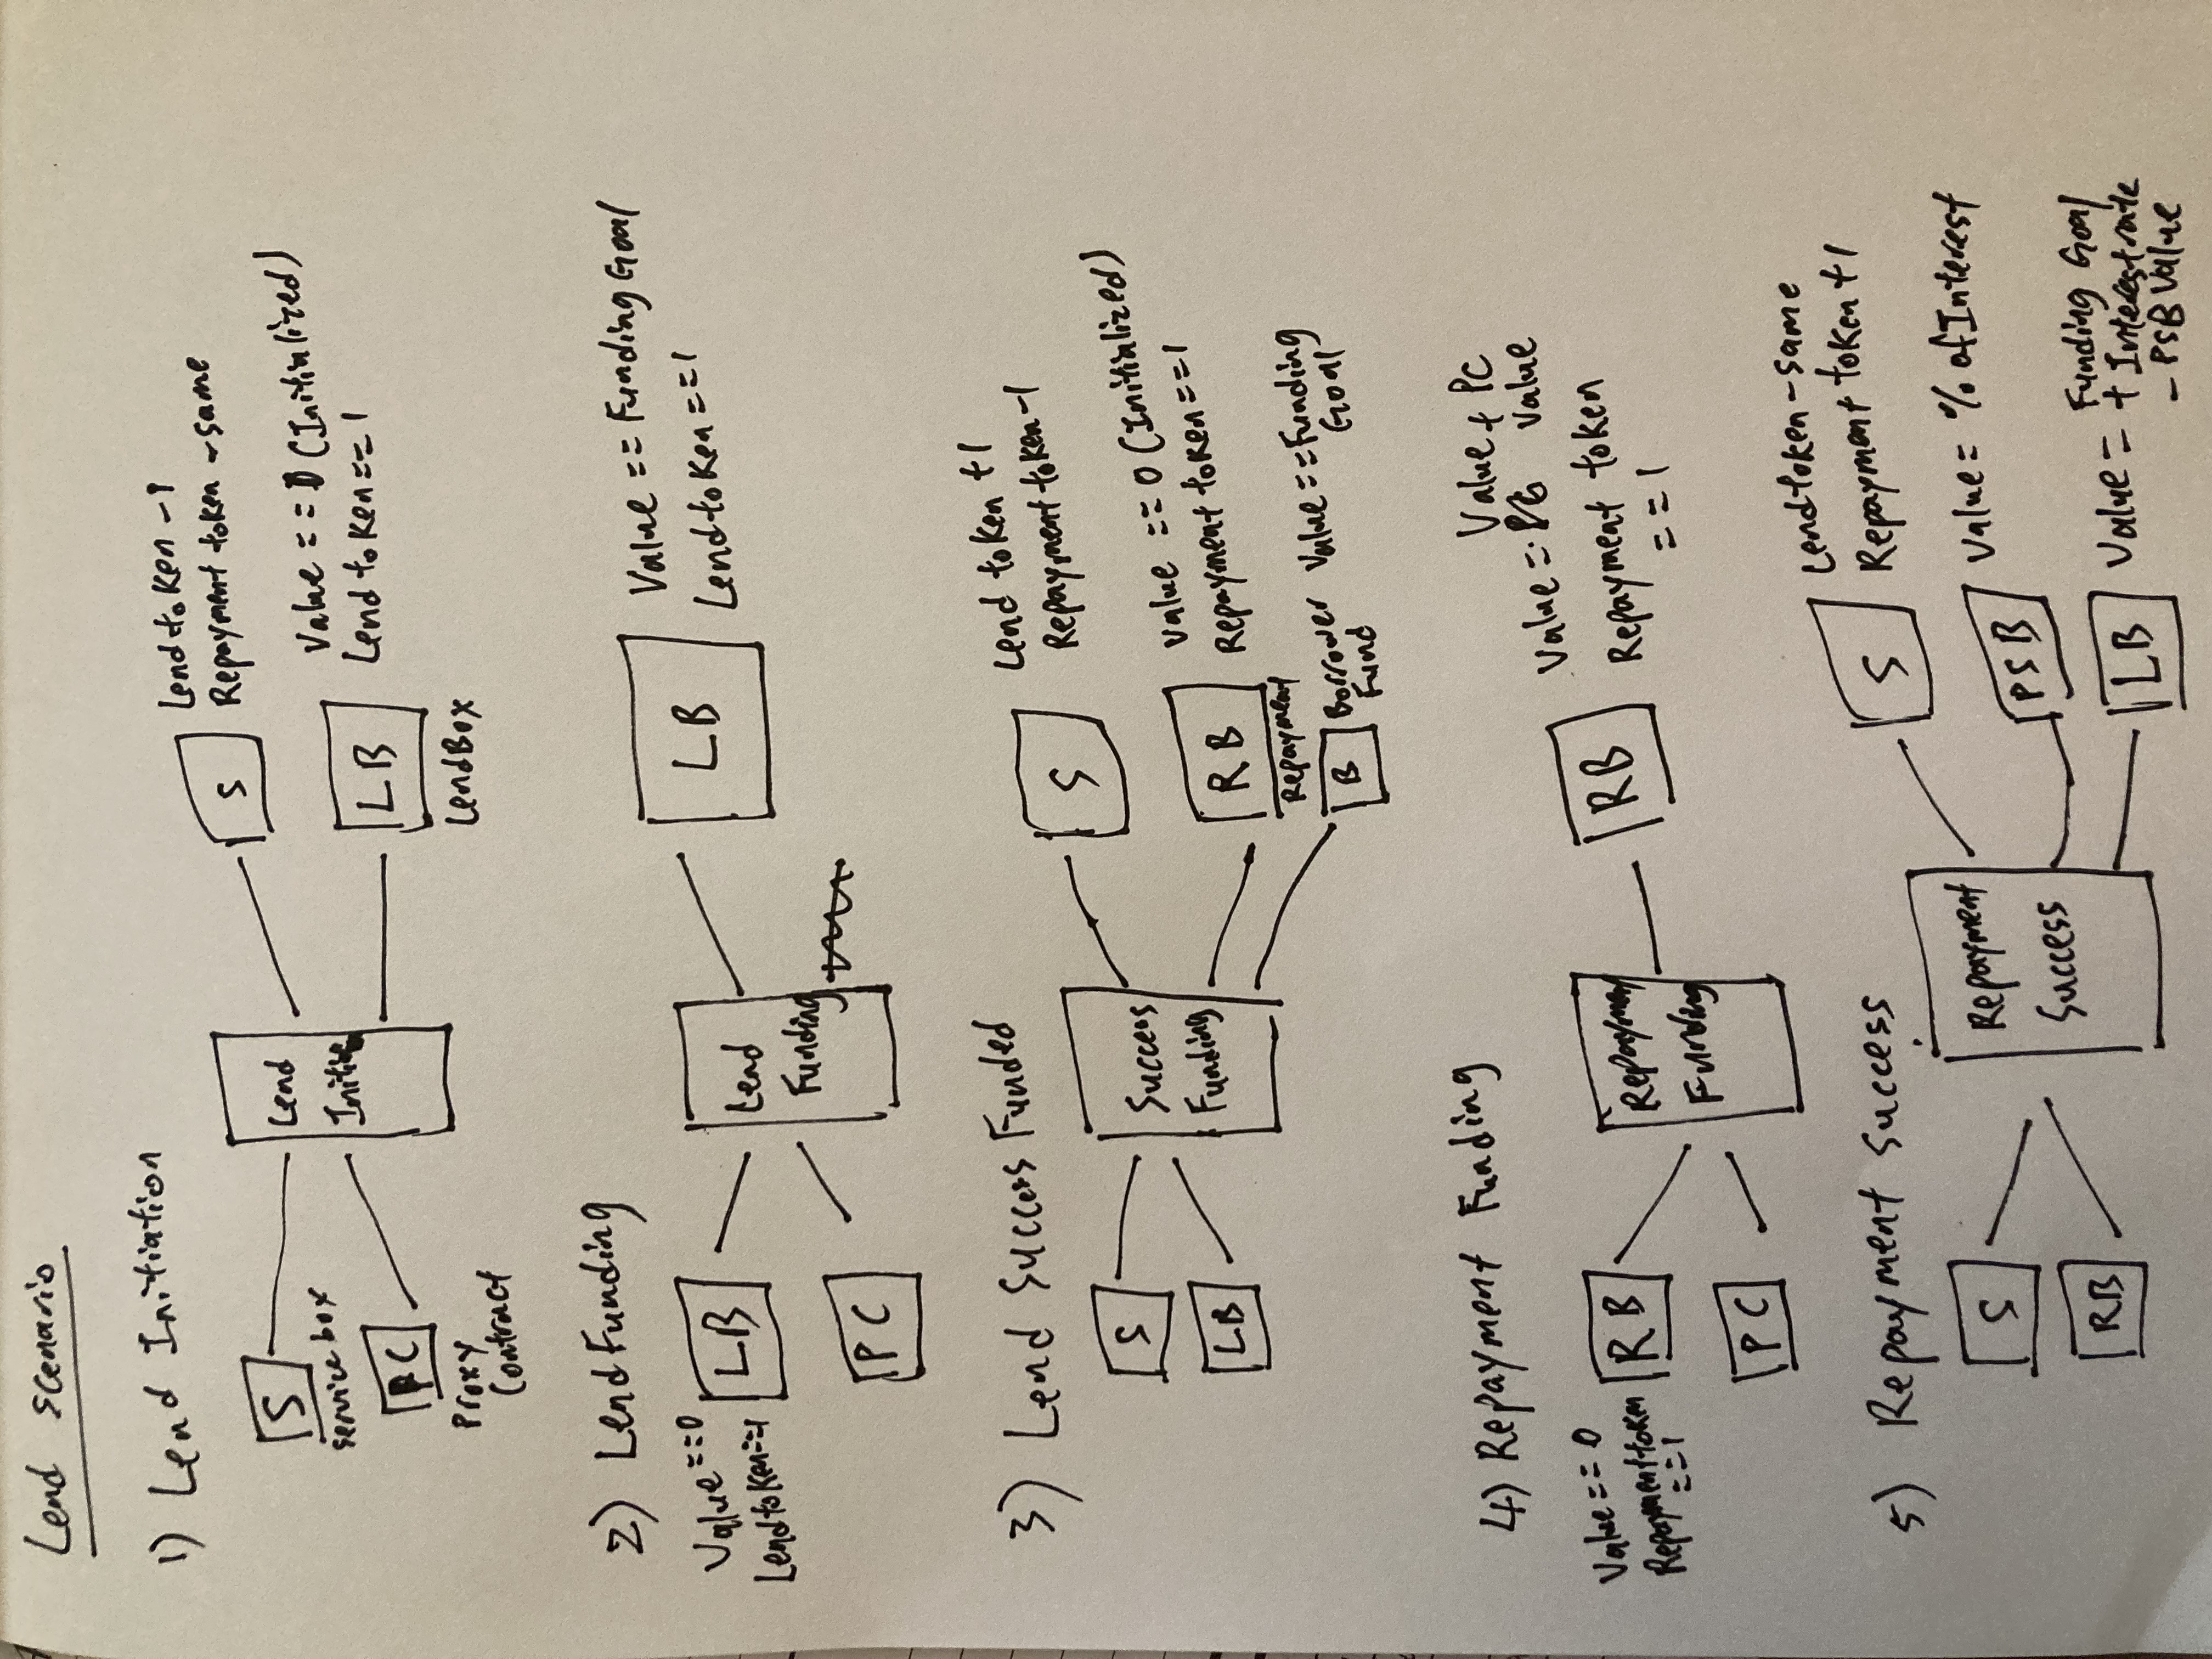 Lend scenario
1) Lend Initiation
S
service box
PC
Proxy
Contract
Lend
S
Lend token -1
Repayment token - same
LB
LendBox
Value == 0 (Initialized)
Lend token == 1
2) Lend Funding
Value == 0
Lend token == 1
LB
PC
Lend
Funding
LB
Value == Funding Goal
Lend token == 1
3) Lend Success Funded
S
LB
Success
Funding
S
Lend token +1
Repayment token -1
RB
Repayment
Value == 0 (Initialized)
Repayment token == 1
B
Borrower
Fund
Value == Funding
Goal
4) Repayment Funding
Value == 0
Repayment token
== 1
RB
PC
Repayment
Funding
RB
Value + PC
Value = Value
Repayment token
== 1
5) Repayment Success
S
RB
Repayment
Success
S
Lend token - same
Repayment token +1
PSB
Value = % of Interest
LB
Value = Funding Goal
+ Interest rate
- PSB Value